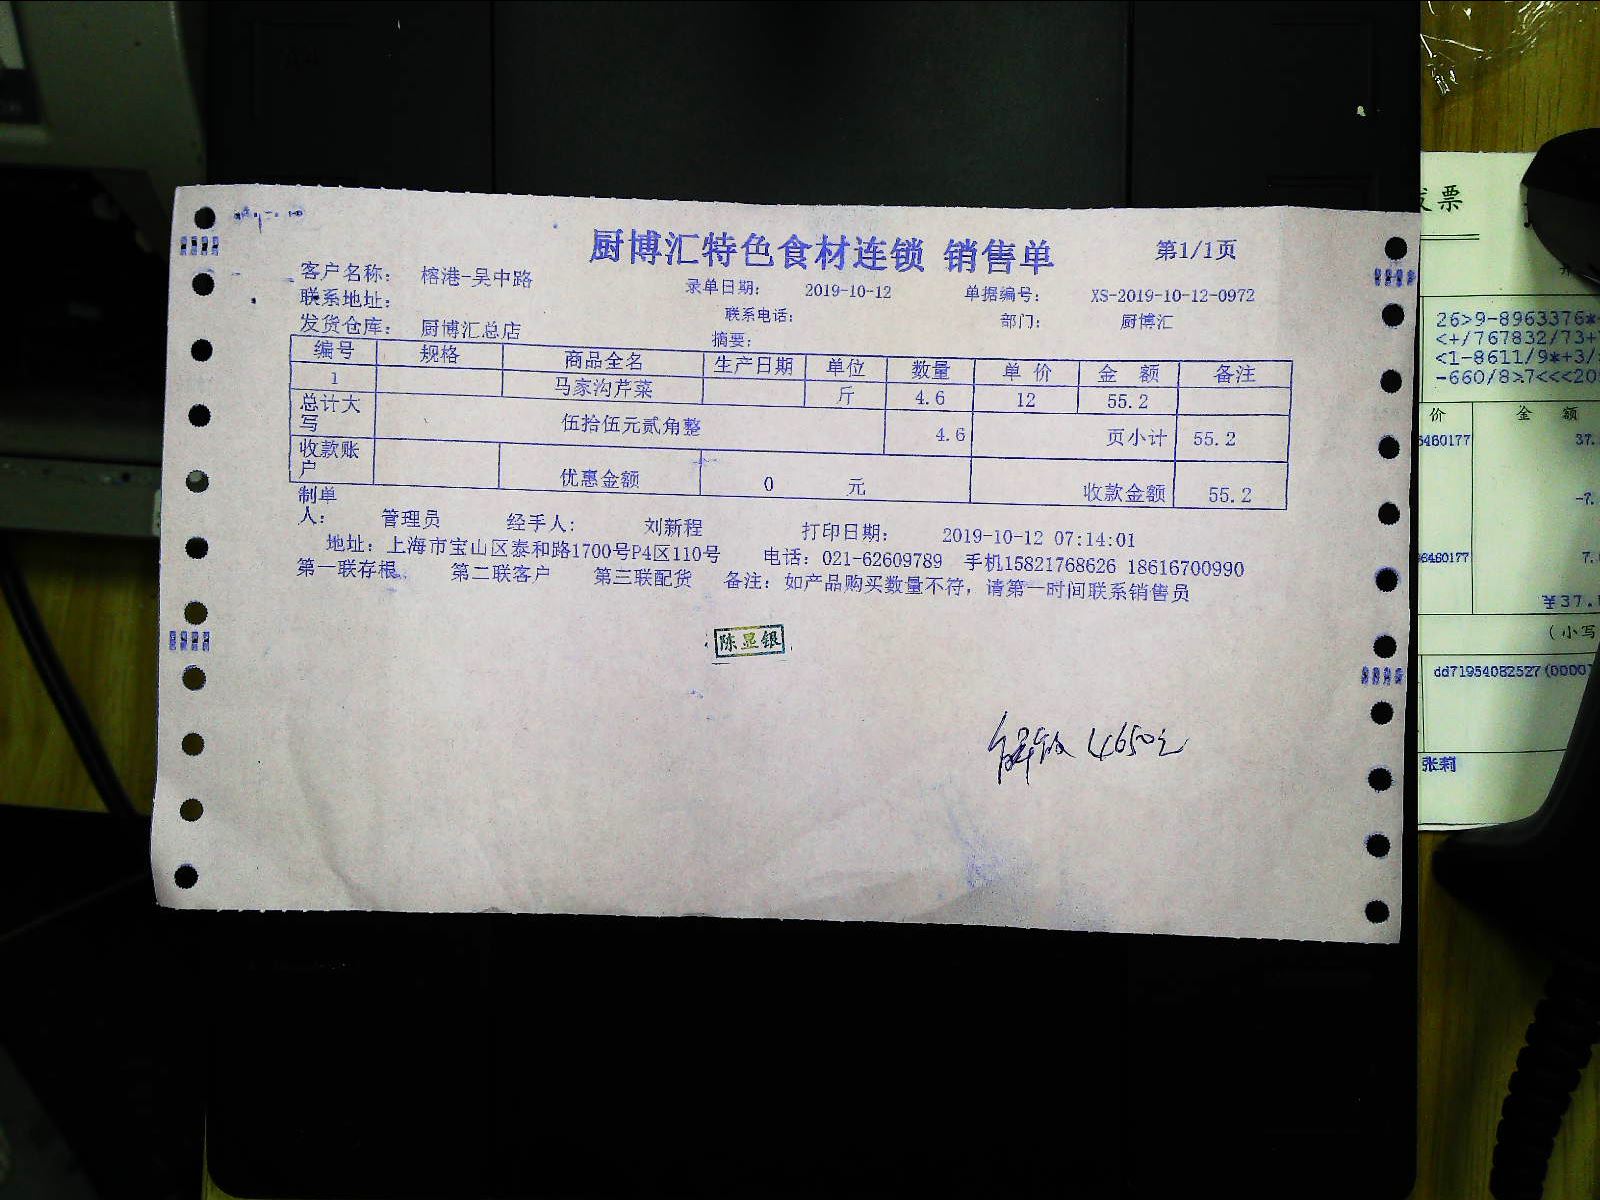 厨博汇特色食材连锁 销售单 第1/1页
客户名称： 榕港-吴中路 录单日期： 2019-10-12 单据编号： XS-2019-10-12-0972
联系地址： 联系电话： 部门： 厨博汇
发货仓库： 厨博汇总店 摘要：
编号 规格 商品全名 生产日期 单位 数量 单 价 金 额 备注
1 马家沟芹菜 斤 4.6 12 55.2
总计大写 伍拾伍元贰角整 4.6 页小计 55.2
收款账户 优惠金额 0 元 收款金额 55.2
制单人： 管理员 经手人： 刘新程 打印日期： 2019-10-12 07:14:01
地址：上海市宝山区泰和路1700号P4区110号 电话：021-62609789 手机15821768626 18616700990
第一联存根 第二联客户 第三联配货 备注：如产品购买数量不符，请第一时间联系销售员
陈显银
发票
26>9-8963376*
<+/767832/73+
<1-8611/9*+3/
-660/8>7<<<20
价 金 额
6460177 37.
-7.
36460177 7.
¥37.
(小写
dd71954082527(0000)
张莉